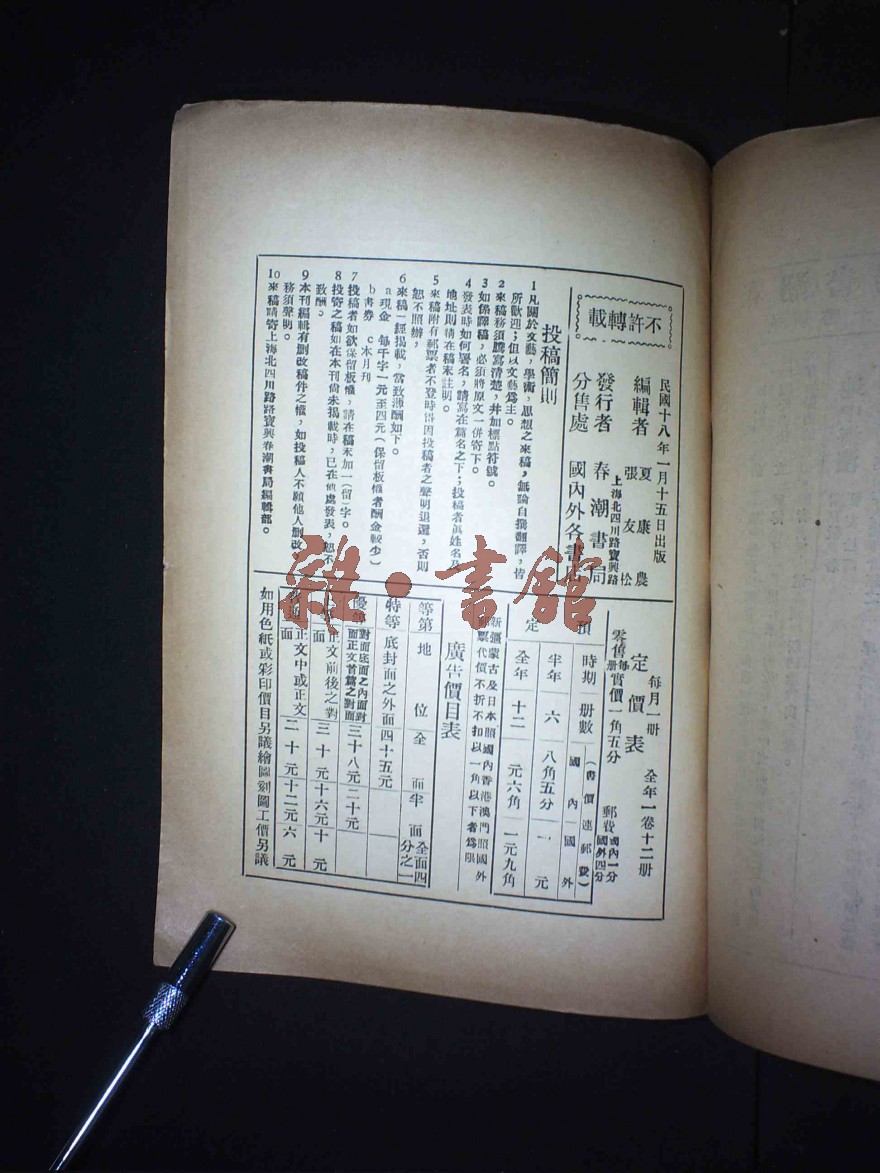 不許轉載
民國十八年一月十五日出版
編輯者 夏康農 張友松
發行者 春潮書局
上海北四川路寶興路
分售處 國內外各書店
投稿簡則
1 凡關於文藝,學術,思想之來稿,無論自撰翻譯,皆
所歡迎;但以文藝爲主。
2 來稿務須騰寫清楚,幷加標點符號。
3 如係譯稿,必須將原文一併寄下。
4 發表時如何署名,請寫在篇名之下;投稿者眞姓名及
地址則請在稿末註明。
5 來稿附有郵票者不登時得因投稿者之聲明退還,否則
恕不照辦,
6 來稿一經揭載,當致薄酬如下。
a 現金 每千字一元至四元(保留板權者酬金較少)
b 書劵 c 本月刊
7 投稿者如欲保留板權,請在稿末加一(留)字。
8 投寄之稿如在本刊尙未揭載時,已在他處發表,恕不
致酬。
9 本刊編輯有刪改稿件之權,如投稿人不願他人刪改,
務須聲明。
10 來稿請寄上海北四川路路寶興春潮書局編輯部。
每月一册 全年一卷十二册
定價表
零售每册實價一角五分 郵費 國內一分 國外四分
預定
時期 册數 (書價連郵費) 國內 國外
半年 六 八角五分 一元
全年 十二 一元六角 一元九角
新疆蒙古及日本照國內香港澳門照國外
郵票代價不折不扣以一角以下者爲限
廣告價目表
等第 地位 全面 半面 全面四分之一
特等 底封面之外面 四十五元
優等 對面底面之內面對面正文首篇之對面 三十八元 二十元
正文前後之對面 三十元 十六元 十元
普通 正文中或正文 二十元 十二元 六元
如用色紙或彩印價目另議繪圖刻圖工價另議
雜·書館